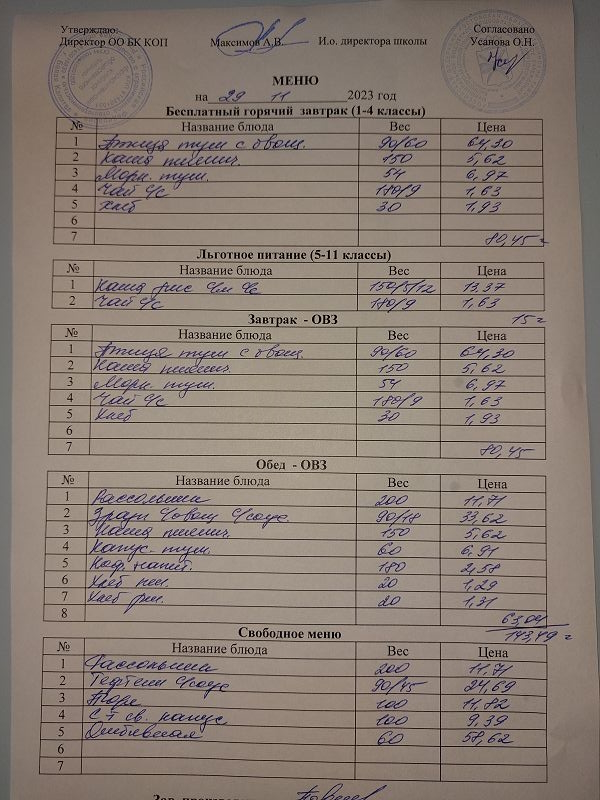 Утверждаю: Согласовано
Директор ОО БК КОП Максимов А.В. И.о. директора школы Усанова О.Н.
МЕНЮ
на 29 11 2023 год
Бесплатный горячий завтрак (1-4 классы)
№ Название блюда Вес Цена
1 Птица туш с овощ. 90/60 64,30
2 Каша пшенич. 150 5,62
3 Морк. туш. 54 6,97
4 Чай с/с 180/9 1,63
5 Хлеб 30 1,93
6
7 80,45
Льготное питание (5-11 классы)
№ Название блюда Вес Цена
1 Каша рис 150/5/12 13,37
2 Чай с/с 180/9 1,63
15
Завтрак - ОВЗ
№ Название блюда Вес Цена
1 Птица туш с овощ. 90/60 64,30
2 Каша пшенич. 150 5,62
3 Морк. туш. 54 6,97
4 Чай с/с 180/9 1,63
5 Хлеб 30 1,93
6
7 80,45
Обед - ОВЗ
№ Название блюда Вес Цена
1 Рассольник 200 11,71
2 Зразы с/овощ с/соус. 90/18 33,62
3 Каша пшенич. 150 5,62
4 Капус. туш. 60 6,91
5 Коф. напит. 180 2,58
6 Хлеб пш. 20 1,29
7 Хлеб рж. 20 1,31
8 63,04
143,49
Свободное меню
№ Название блюда Вес Цена
1 Рассольник 200 11,71
2 Тефтели с/соус 90/45 24,69
3 Пюре 100 11,82
4 С-т св. капус 100 9,39
5 Отбивная 60 58,62
6
7
Зав. произво